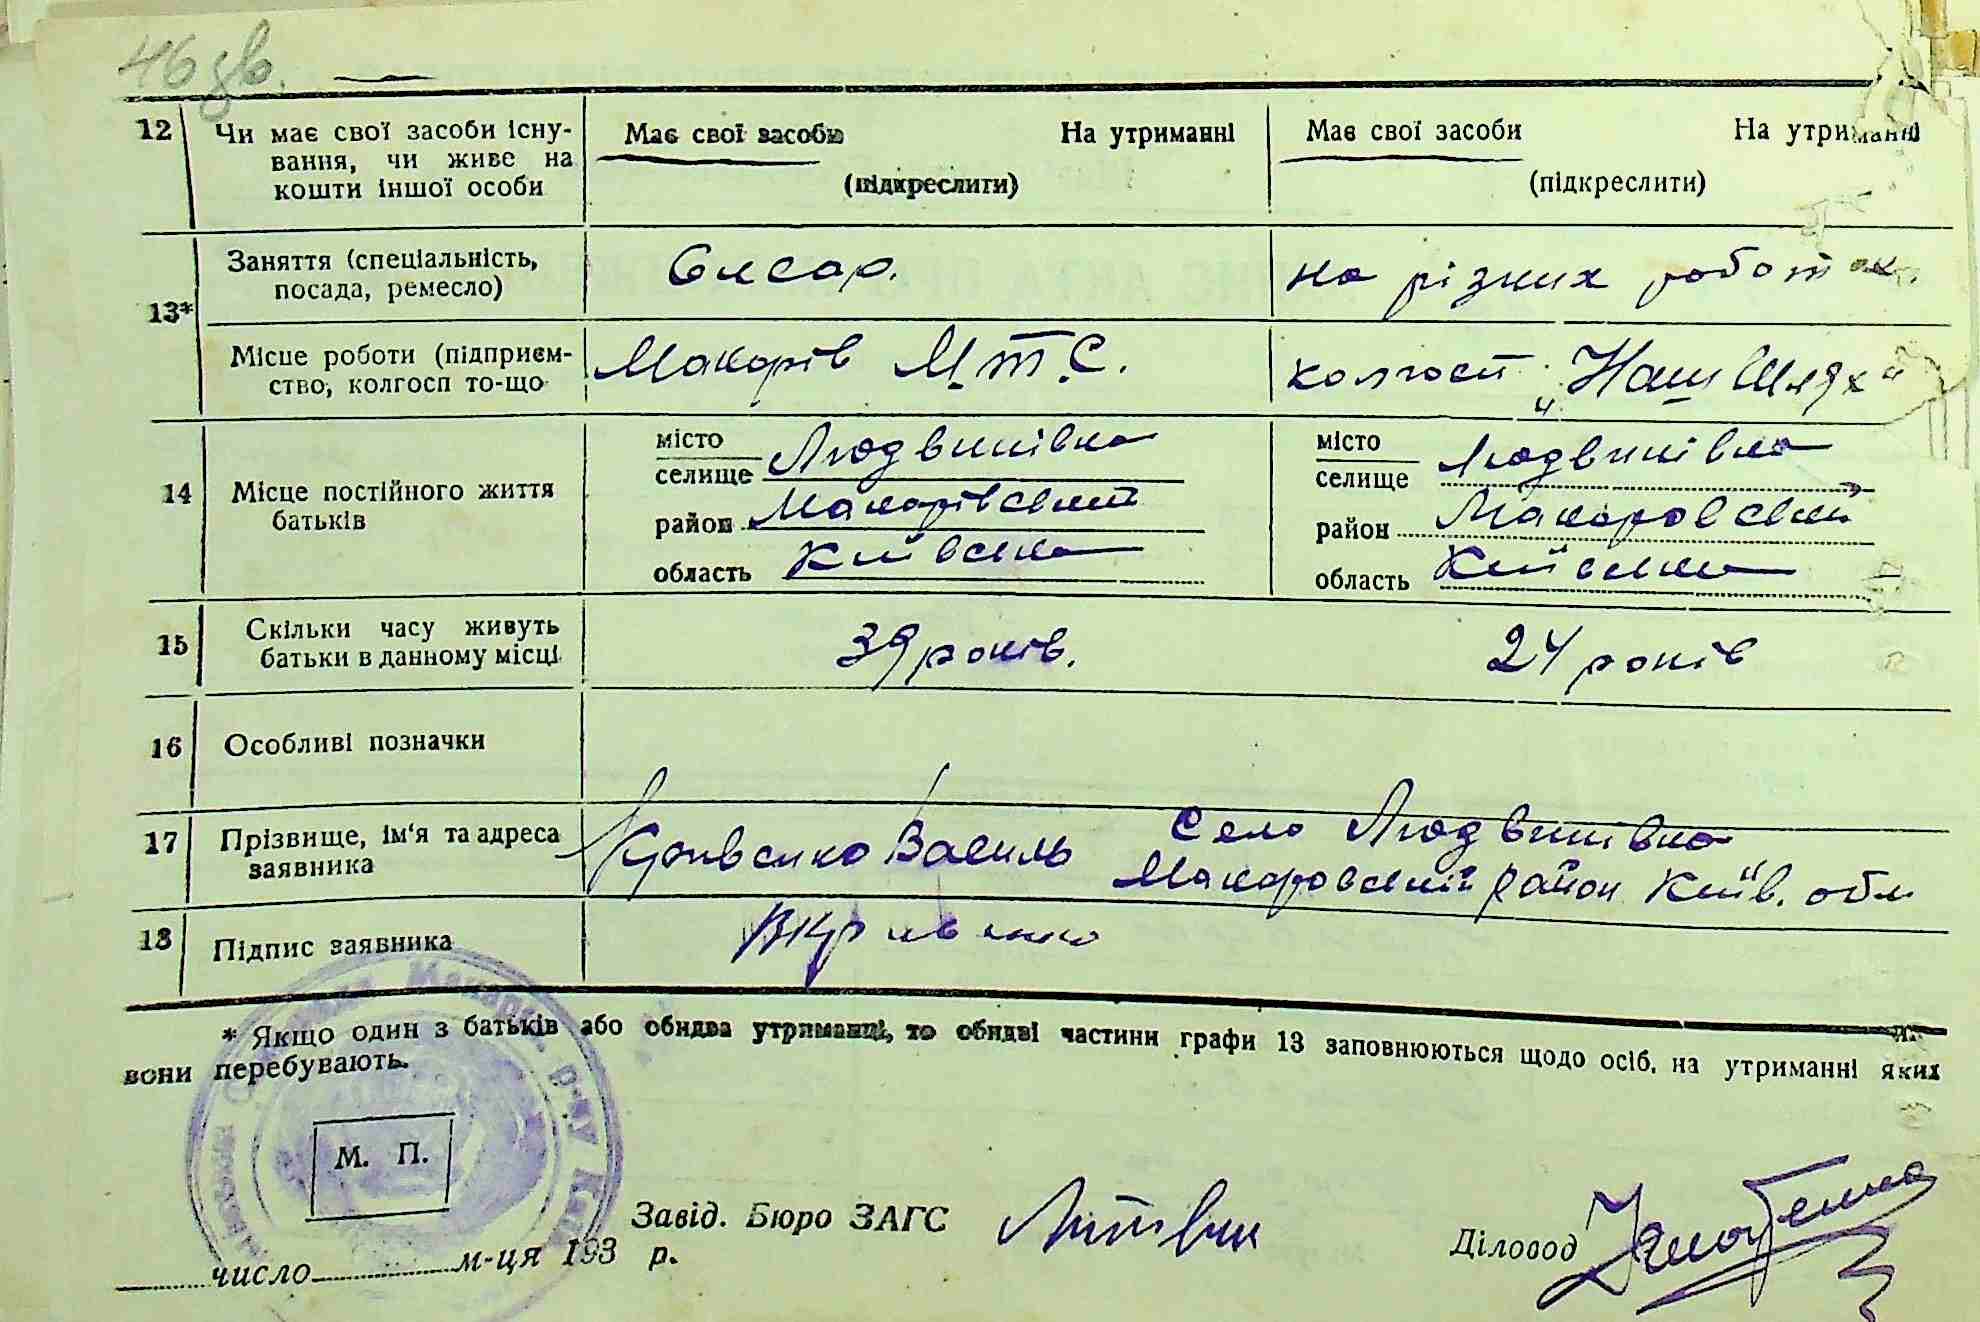 46 зв.
12 Чи має свої засоби існу- Має свої засоби На утриманні Має свої засоби На утриманні
вання, чи живе на
кошти іншої особи (підкреслити) (підкреслити)
Заняття (спеціальність, Слєсар. на різних роботах.
посада, ремесло)
13*
Місце роботи (підприєм- Макорів М.Т.С. колгосп „Наш Шлях"
ство, колгосп то-що
місто місто
селище Людвинівка селище Людвинівка
14 Місце постійного життя
батьків район Макарівский район Макаровский
область Київска область Київска
15 Скільки часу живуть 39 років. 24 років
батьки в данному місці
16 Особливі позначки
17 Прізвище, ім'я та адреса Кривенко Василь Село Людвинівка
заявника Макаровский район Київ. обл
18 Підпис заявника ВКривенко
* Якщо один з батьків або обидва утриманці, то обидві частини графи 13 заповнюються щодо осіб, на утриманні яких
вони перебувають.
М. П.
Завід. Бюро ЗАГС Літвин Діловод
число м-ця 193 р.